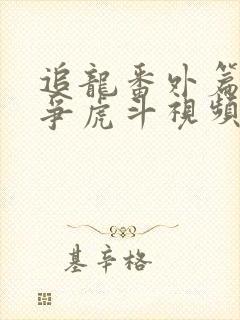 追龍番外篇
爭虎斗視頻
基辛格